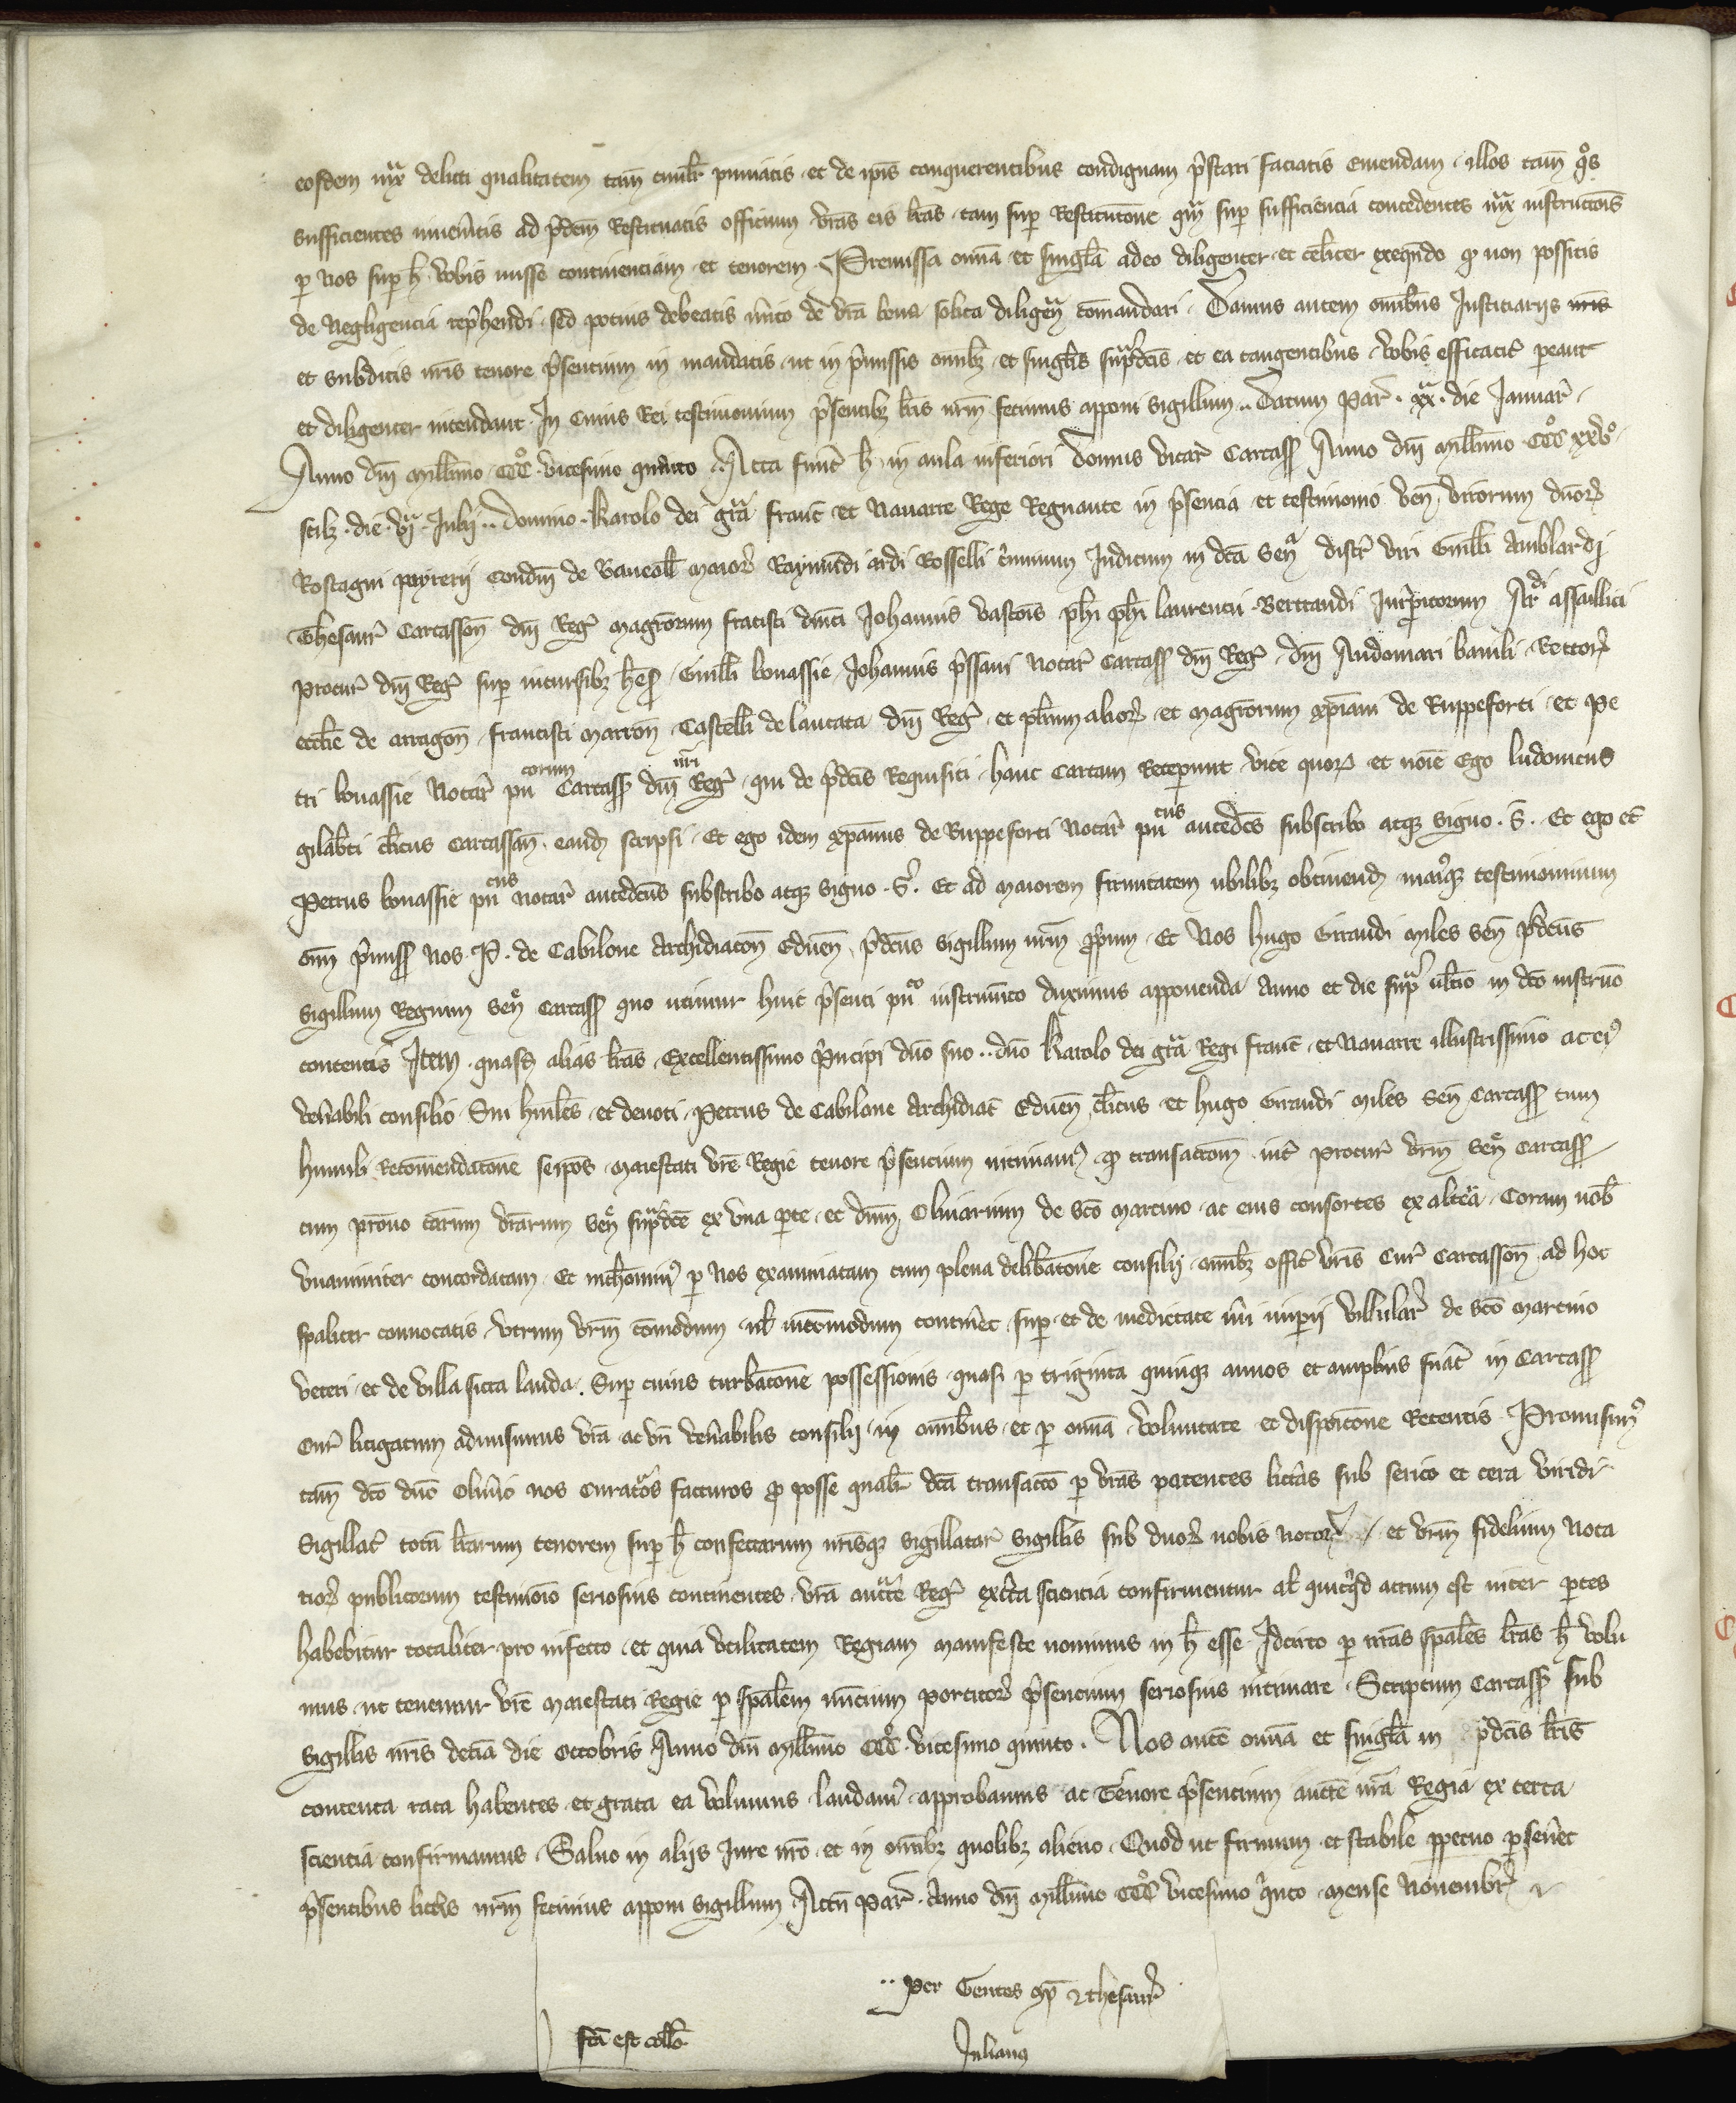 eosdem iux̃ delicti qualitatem tam̃ cᷤiul̃r puniatis et de ip̃is conquerentibus condignam p̃stari faciatis emendam illos tam̃ q̊s
sufficientes inuenᷤitis ad p̃dc̃m Restituatis officium vr̃as eis lr̃as tam sup̱ Restituc̃one qᷓm sup̱ sufficiencia concedentes iux̃ instructõis
p̱ nos sup̱ h̃ vobis misse continenciam et tenorem Premissa om̃ia et singl̃a adeo diligenter et cel̃iter exeqũdo ꝙ non possitis
de negligencia rep̃hendi sed potius debeatis m̃ito de vr̃a bona solita diligen̄ cõmandari Damus autem om̃ibus Justiciarijs nr̃is
et subditis nr̃is tenore p̃sentium in mandatis ut in p̃missis om̃ibꝫ et singl̃is sup̃dc̃is et ea tangentibus vobis efficacit̃ p̱eant
et diligenter intendant In cuius Rei testimonium p̃sentibꝫ lr̃is nr̃m fecimus apponi sigillum Datum Par̃ xxᵃ die Januar̃
Anno dñi mill̃imo CCC̊ vicesimo quarto Acta fuñt h̃ in aula inferiori domus vicar̃ Carcass̃ Anno dñi mill̃imo CCC̊ xxv̊
scilꝫ die vjᵃ Julij domino Karolo dei gr̃a franc̃ et Nauarre Rege Regnante in p̃sencia et testimonio veñ virorum duõꝝ
Rostagni peyrerij condm̃ de Baucall̃ maioꝝ Raymundi ardi Rosselli c̃iminum Judicum in dc̃a señ discr̃ viri Guill̃i Amblardi
Thesaur̃ Carcassoñ dñi Reg̃ magr̃orum francisci dñici Johannis vascõis ph̃i ph̃i laurencii Bertrandi Jurp̃itorum Arᵈⁱ assalliti
Procur̃ dñi Reg̃ sup̱ incursibꝫ h̃es̃ Guill̃i bonassie Johannis p̃ssani Notar̃ Carcass̃ dñi Reg̃ dñi Audomari bauili Rectoꝝ
eccl̃ie de arragoñ francisci marroñ Castell̃i de laucata dñi Reg̃ et pl̃ium alioꝝ et magr̃orum xp̃iani de Ruppeforti et Pe
tri bonassie Notar̃ puᶜᵒʳᵘᵐ Carcass̃ dñi nr̃i Reg̃ qui de p̃dc̃is Requisiti hanc Cartam Recep̱unt vice quoꝝ et noĩe Ego ludouicus
gilab̃ti cl̃icus Carcassoñ eand̃ scripsi Et ego idem xp̃ianus de Ruppeforti Notar̃ puᶜᵘˢ antedc̃s subscribo atqꝫ signo S̃ Et ego et̃
Petrus bonassie puᶜᵘˢ Notar̃ antedc̃us subscribo atqꝫ signo S̃ Et ad maiorem firmitatem ubilibꝫ obtinend̃ maiqꝫ testimonium
om̃ p̃miss̃ nos P de Cabilone Archidiacoñ Edueñ p̃dc̃us sigillum nr̃m p̱p̃um Et Nos hugo Giraudi miles señ p̃dc̃us
Sigillum Regium señ Carcass̃ quo utimur huic p̃senti puᶜᵒ instrum̃to duximus apponenda Anno et die sup̃ ult̃io in dc̃o instrum̃o
contentis Item quasd̃ alias lr̃as Excellentissimo p̃ncipi dño suo dño Karolo dei gr̃a Regi franc̃ et Nauarre illustrissimo ac eiꝰ
ven̄abili consilio Sui hm̃iles et deuoti Petrus de Cabilone Archidiac̃ Edueñ cl̃icus et hugo Giraudi miles Señ Carcass̃ cum
humili Recom̃endac̃one seip̃os maiestati vr̃e Regie tenore p̃sentium intimamꝰ ꝙ transacc̃om int̃ Procur̃ vr̃m señ Carcass̃
cum pr̃ono caᷤrum vr̃arum señ sup̃dc̃e ex vna p̱te et dñm Oliuarium de Sc̃o martino ac eius consortes ex alt̃a Coram nob̃
vnanimiter concordatam Et p̱ nos examinatam cum plena delib̃ac̃one consilij om̃ibꝫ offic̃ vr̃is Cur̃ Carcassoñ ad hoc
spaliter conuocatis vtrum vr̃m com̃odum ul̃ incom̃odum contin̄et sup̱ et de medietate m̃i imp̱ij villular̃ de Sc̃o martino
veteri et de villa sicca lauda Sup̱ cuius turbac̃one possessionis quasi p̱ triginta quinqꝫ annos et amplius fuᷤat in Carcass̃
Cur̃ litigatum admisimus vr̃a ac vr̃i ven̄abilis consilij in om̃ibus et p̱ om̃ia voluntate et disposic̃one Retentis Promisimꝰ
tam̃ dc̃o dño Oliũio nos curatᷤos facturos ꝓ posse qual̃r dc̃a transacc̃o p̱ vr̃as patentes litt̃as sub serico et cera viridi
Sigillat̃ toc̃ lr̃arum tenorem sup̱ h̃ confectarum nr̃isqꝫ sigillatar̃ sigillis sub duoꝝ nobis notoꝝ et vr̃m fidelium nota
rioꝝ publicorum testimoĩo seriosius continentes vr̃a auct̃e Reg̃ ex c̃ta sciencia confirmentur al̃ quicq̃d actum est inter p̱tes
habebitur totaliter pro infecto et quia vtilitatem Regiam manifeste nouimus in h̃ esse Idcirco p̱ nr̃as spal̃es lr̃as h̃ volu
mus ut tenemur vr̃e maiestati Regie p̱ spal̃em nũcium portitoꝝ p̃sentium seriosius intimare Scriptum Carcass̃ sub
sigillis nr̃is dec̃ia die Octobris Anno dñi mill̃imo CCC̊ vicesimo quinto Nos aut̃ om̃ia et singl̃a in p̃dc̃is lr̃is
contenta rata habentes et grata ea volumus laudamꝰ approbamus ac Tenore p̃sentium auct̃e nr̃a Regia ex certa
sciencia confirmamus Saluo in alijs Jure nr̃o et in om̃ibꝫ quolibꝫ alieno Quod ut firmum et stabile p̱petuo p̱seũet
p̃sentibus litt̃is nr̃m fecimus apponi sigillum Actũ Par̃ Anno dñi mill̃imo CCC̊ vicesimo q̃nto mense Nouembr̃
Per Gentes cᷤmp̃ ⁊ thesaur̃
fc̃a est coll̃o
Julianus